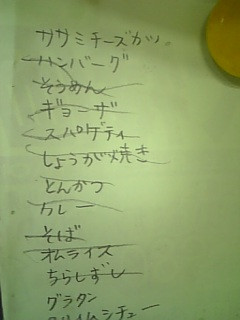 ササミチーズカツ
ハンバーグ
そうめん
ギョーザ
スパゲティ
しょうが焼き
とんかつ
カレー
そば
オムライス
ちらしずし
グラタン
クリイムシチュー